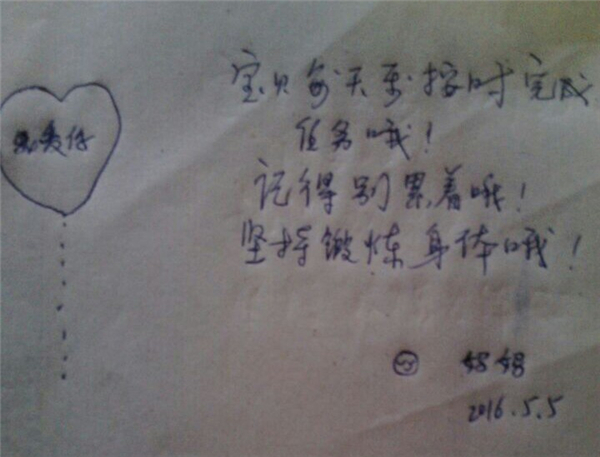 我爱你
宝贝每天要按时完成
任务哦！
记得别累着哦！
坚持锻炼身体哦！
妈妈
2016.5.5